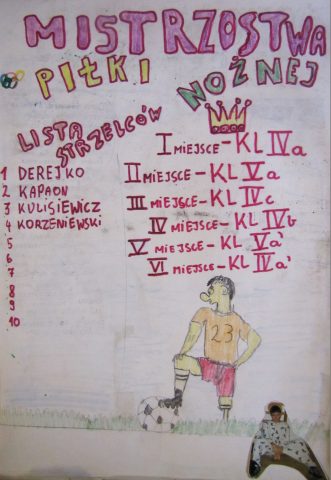 MISTRZOSTWA
PIŁKI NOŻNEJ
LISTA
STRZELCÓW
1 DEREJKO
2 KAPAON
3 KULISIEWICZ
4 KORZENIEWSKI
5
6
7
8
9
10
I MIEJSCE - KL IVa
II MIEJSCE - KL Va
III MIEJSCE - KL IVc
IV MIEJSCE - KL IVb
V MIEJSCE - KL Va'
VI MIEJSCE - KL IVa'
23